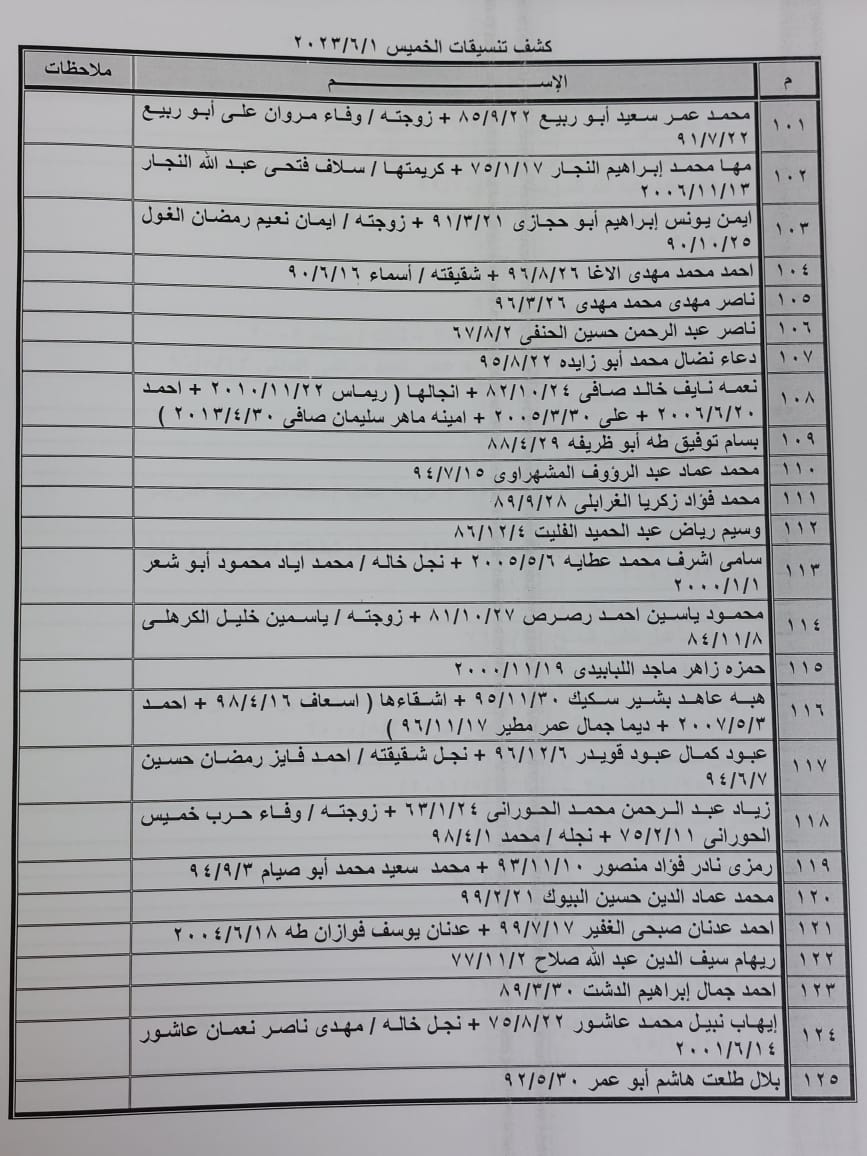 كشف تنسيقات الخميس ٢٠٢٣/٦/١
م الإســـم ملاحظات
١٠١ محمد عمر سعيد أبو ربيع ٨٥/٩/٢٢ + زوجته / وفاء مروان على أبو ربيع
٩١/٧/٢٢
١٠٢ مها محمد إبراهيم النجار ٧٥/١/١٧ + كريمتها / سلاف فتحى عبد الله النجار
٢٠٠٦/١١/١٣
١٠٣ ايمن يونس إبراهيم أبو حجازى ٩١/٣/٢١ + زوجته / ايمان نعيم رمضان الغول
٩٠/١٠/٢٥
١٠٤ احمد محمد مهدى الاغا ٩٦/٨/٢٦ + شقيقته / أسماء ٩٠/٦/١٦
١٠٥ ناصر مهدى محمد مهدى ٩٦/٣/٢٦
١٠٦ ناصر عبد الرحمن حسين الحنفى ٦٧/٨/٢
١٠٧ دعاء نضال محمد أبو زايده ٩٥/٨/٢٢
١٠٨ نعمه نايف خالد صافى ٨٢/١٠/٢٤ + انجالها ( ريماس ٢٠١٠/١١/٢٢ + احمد
٢٠٠٦/٦/٢٠ + على ٢٠٠٥/٣/٣٠ + امينه ماهر سليمان صافى ٢٠١٣/٤/٣٠ )
١٠٩ بسام توفيق طه أبو ظريفه ٨٨/٤/٢٩
١١٠ محمد عماد عبد الرؤوف المشهراوى ٩٤/٧/١٥
١١١ محمد فؤاد زكريا الغرابلى ٨٩/٩/٢٨
١١٢ وسيم رياض عبد الحميد الفليت ٨٦/١٢/٤
١١٣ سامى اشرف محمد عطايه ٢٠٠٥/٥/٦ + نجل خاله / محمد اياد محمود أبو شعر
٢٠٠٠/١/١
١١٤ محمود ياسين احمد رصرص ٨١/١٠/٢٧ + زوجته / ياسمين خليل الكرهلى
٨٤/١١/٨
١١٥ حمزه زاهر ماجد اللبابيدى ٢٠٠٠/١١/١٩
١١٦ هبه عاهد بشير سكيك ٩٥/١١/٣٠ + اشقاءها ( اسعاف ٩٨/٤/١٦ + احمد
٢٠٠٧/٥/٣ + ديما جمال عمر مطير ٩٦/١١/١٧ )
١١٧ عبود كمال عبود قويدر ٩٦/١٢/٦ + نجل شقيقته / احمد فايز رمضان حسين
٩٤/٦/٧
١١٨ زياد عبد الرحمن محمد الحورانى ٦٣/١/٢٤ + زوجته / وفاء حرب خميس
الحورانى ٧٥/٢/١١ + نجله / محمد ٩٨/٤/١
١١٩ رمزى نادر فؤاد منصور ٩٣/١١/١٠ + محمد سعيد محمد أبو صيام ٩٤/٩/٣
١٢٠ محمد عماد الدين حسين البيوك ٩٩/٢/٢١
١٢١ احمد عدنان صبحى الغفير ٩٩/٧/١٧ + عدنان يوسف فوازان طه ٢٠٠٤/٦/١٨
١٢٢ ريهام سيف الدين عبد الله صلاح ٧٧/١١/٢
١٢٣ احمد جمال إبراهيم الدشت ٨٩/٣/٣٠
١٢٤ إيهاب نبيل محمد عاشور ٧٥/٨/٢٢ + نجل خاله / مهدى ناصر نعمان عاشور
٢٠٠١/٦/١٤
١٢٥ بلال طلعت هاشم أبو عمر ٩٢/٥/٣٠